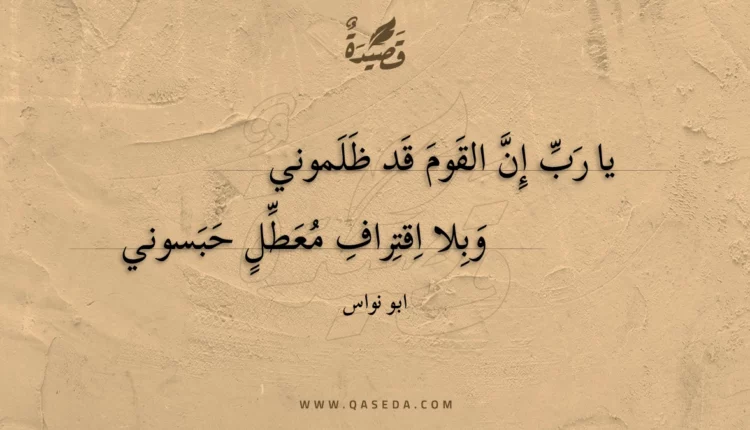 قَصِيْدَةٌ
يا رَبِّ إِنَّ القَومَ قَد ظَلَموني
وَبِلا اِقتِرافِ مُعَطِّلٍ حَبَسوني
ابو نواس
WWW.QASEDA.COM